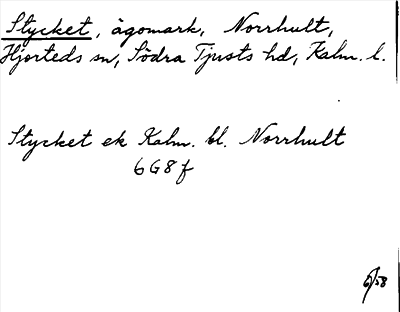 Stycket, ägomark, Norrhult,
Hjorteds sn, Södra Tjusts hd, Kalm. l.
Stycket ek Kalm. bl. Norrhult
6G8f
6/58